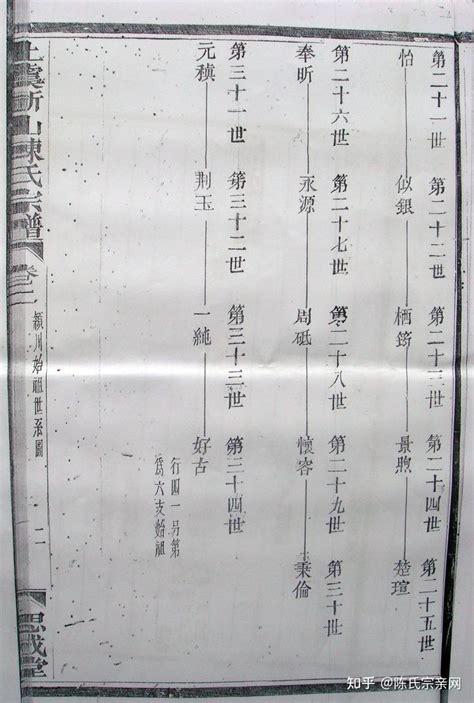 第二十一世 第二十二世 第二十三世 第二十四世 第二十五世
怡 似銀 栖 景煦 楚瑄
第二十六世 第二十七世 第二十八世 第二十九世 第三十世
奉昕 永源 周砥 懷容 秉倫
第三十一世 第三十二世 第三十三世 第三十四世
元稹 荆玉 一純 好古
行四一另第
爲六支始祖
上虞新山陳氏宗譜 卷二 潁川始祖世系圖 二 思成堂
知乎 @陈氏宗亲网